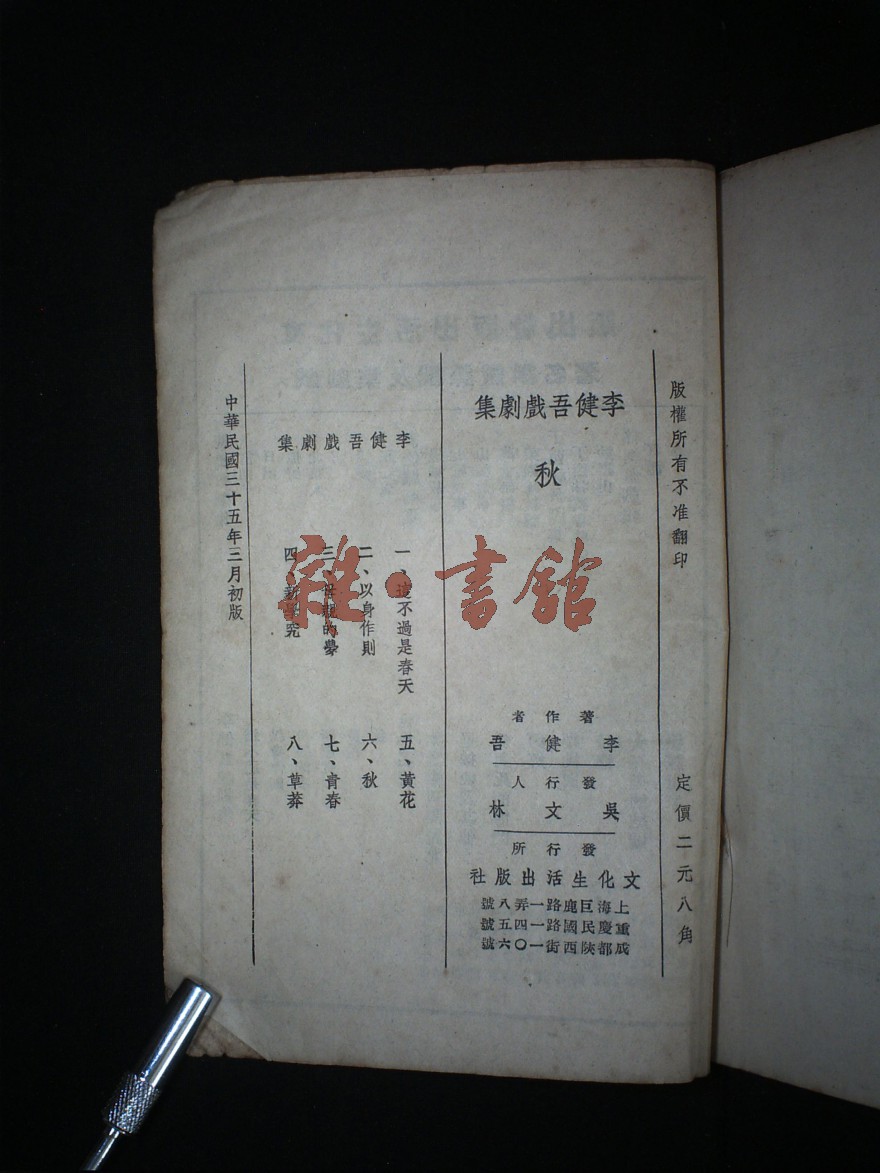 版權所有不准翻印
定價二元八角
李健吾戲劇集
秋
著作者
李健吾
發行人
吳文林
發行所
文化生活出版社
上海巨鹿路一弄八號
重慶民國路一四五號
成都陝西街一〇六號
李健吾戲劇集
一、這不過是春天
二、以身作則
三、母親的夢
四、新學究
五、黃花
六、秋
七、青春
八、草莽
中華民國三十五年三月初版
雜·書館